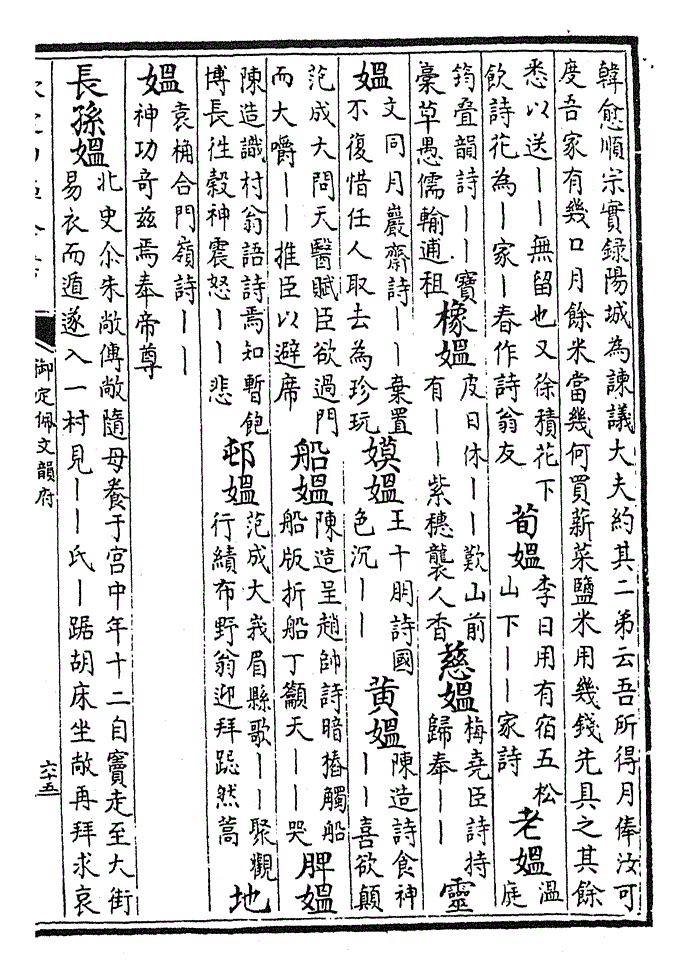 韓愈順宗實録陽城為諫議大夫約其二弟云吾所得月俸汝可
度吾家有幾口月餘米當幾何買薪菜鹽米用幾錢先具之其餘
悉以送丨丨無留也又徐積花下
飲詩花為丨家丨春作詩翁友
荀媼
李日用有宿五松
山下丨丨家詩
老媼
溫
庭
筠叠韻詩丨丨寶
槀草愚儒輸逋租
橡媼
皮日休丨丨歎山前
有丨丨紫穗襲人香
慈媼
梅堯臣詩持
歸奉丨丨
靈
媼
文同月巖齋詩丨丨棄置
不復惜任人取去為珍玩
嫫媼
王十朋詩國
色沉丨丨
黄媼
陳造詩食神
丨丨喜欲顛
范成大問天醫賦臣欲過門
而大嚼丨丨推臣以避席
船媼
陳造呈趙帥詩暗樁觸船
船版折船丁籲天丨丨哭
脾媼
陳造識村翁語詩焉知暫飽
博長往穀神震怒丨丨悲
邨媼
范成大我眉縣歌丨丨聚觀
行績布野翁迎拜跽然蒿
地
媼
袁桷合門嶺詩丨丨
神功奇兹焉奉帝尊
長孫媼
北史尒朱敞傳敞隨母養于宫中年十二自竇走至大街
易衣而遁遂入一村見丨丨氏丨踞胡床坐敞再拜求哀
御定佩文韻府
六十五